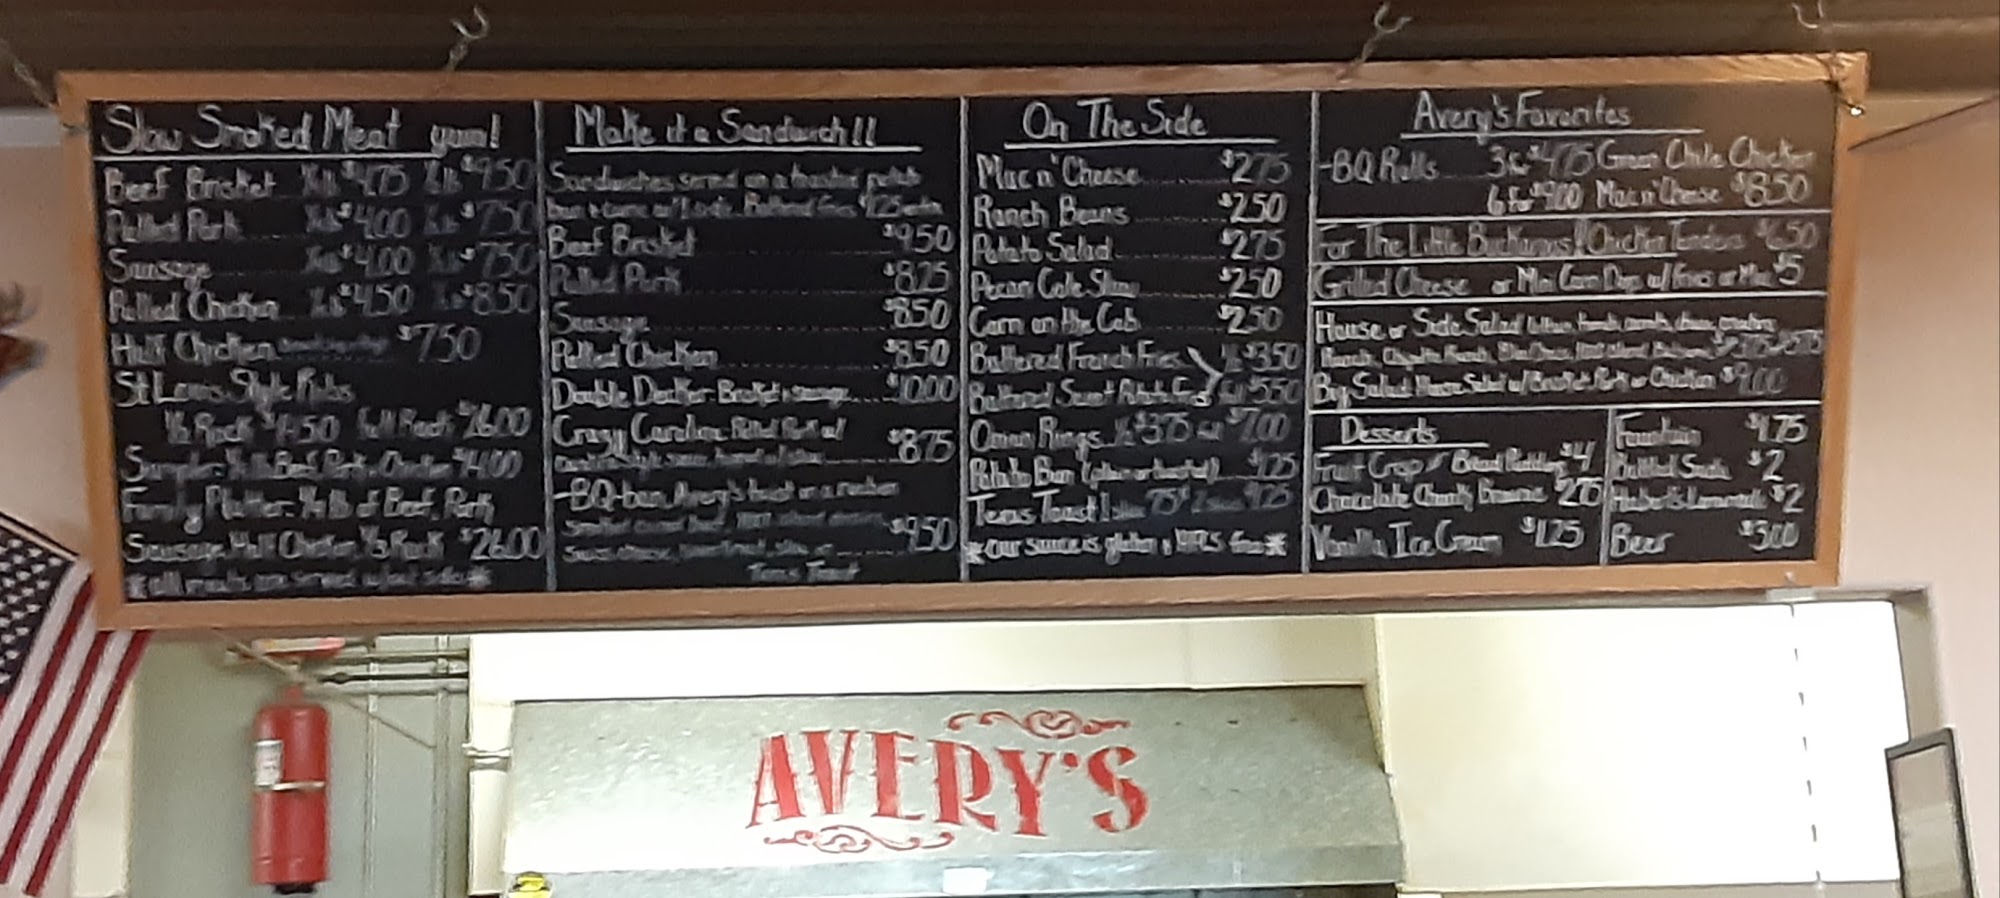 Slow Smoked Meat yum!
Beef Brisket ¼ lb $4.75 ½ lb $9.50
Pulled Pork ¼ lb $4.00 ½ lb $7.50
Sausage ¼ lb $4.00 ½ lb $7.50
Pulled Chicken ¼ lb $4.50 ½ lb $8.50
Half Chicken $7.50
St Louis Style Ribs
½ Rack Full Rack $26.00
Sampler: ¼ lb Beef, Pork, Chicken
Family Platter: ¼ lb of Beef, Pork
Sausage, Half Chicken, ⅓ Rack $26.00
*all meats are served w/out sides*
Make it a Sandwich!!
Sandwiches served on a toasted potato
bun & come w/1 side. Battered fries $1.25 extra
Beef Brisket $9.50
Pulled Pork $8.25
Sausage $8.50
Pulled Chicken $8.50
Double Decker Brisket & sausage $10.00
Crazy Carolina Pulled Pork w/ $8.75
Carolina style sauce
-BQ-ban Avery's twist on a reuben
$9.50
Texas Toast
On The Side
Mac n' Cheese $2.75
Ranch Beans $2.50
Potato Salad $2.75
Pecan Cole Slaw $2.50
Corn on the Cob $2.50
Battered French Fries ½ $3.50
Battered Sweet Potato Fries full $5.50
Onion Rings ½ $3.75 full $7.00
Potato Bun (plain or toasted) $1.25
Texas Toast 1 slice 75¢ 2 slices $1.25
*our sauce is gluten & HFCS free*
Avery's Favorites
-BQ Rolls 3 for $4.75 Green Chile Chicken
6 for $9.00 Mac n' Cheese $8.50
For The Little Buckaroos!! Chicken Tenders $6.50
Grilled Cheese or Mini Corn Dogs w/ fries or Mac $5
House or Side Salad
Ranch, Chipotle Ranch, Bleu Cheese, 1000 Island, Balsamic
Big Salad House Salad w/ Brisket, Pork or Chicken $9.00
Desserts
Fruit Crisp / Bread Pudding $4
Chocolate Chunk Brownie $2.75
Vanilla Ice Cream $1.25
Fountain $1.75
Bottled Soda $2
Hubert's Lemonade $2
Beer $3.00
AVERY'S